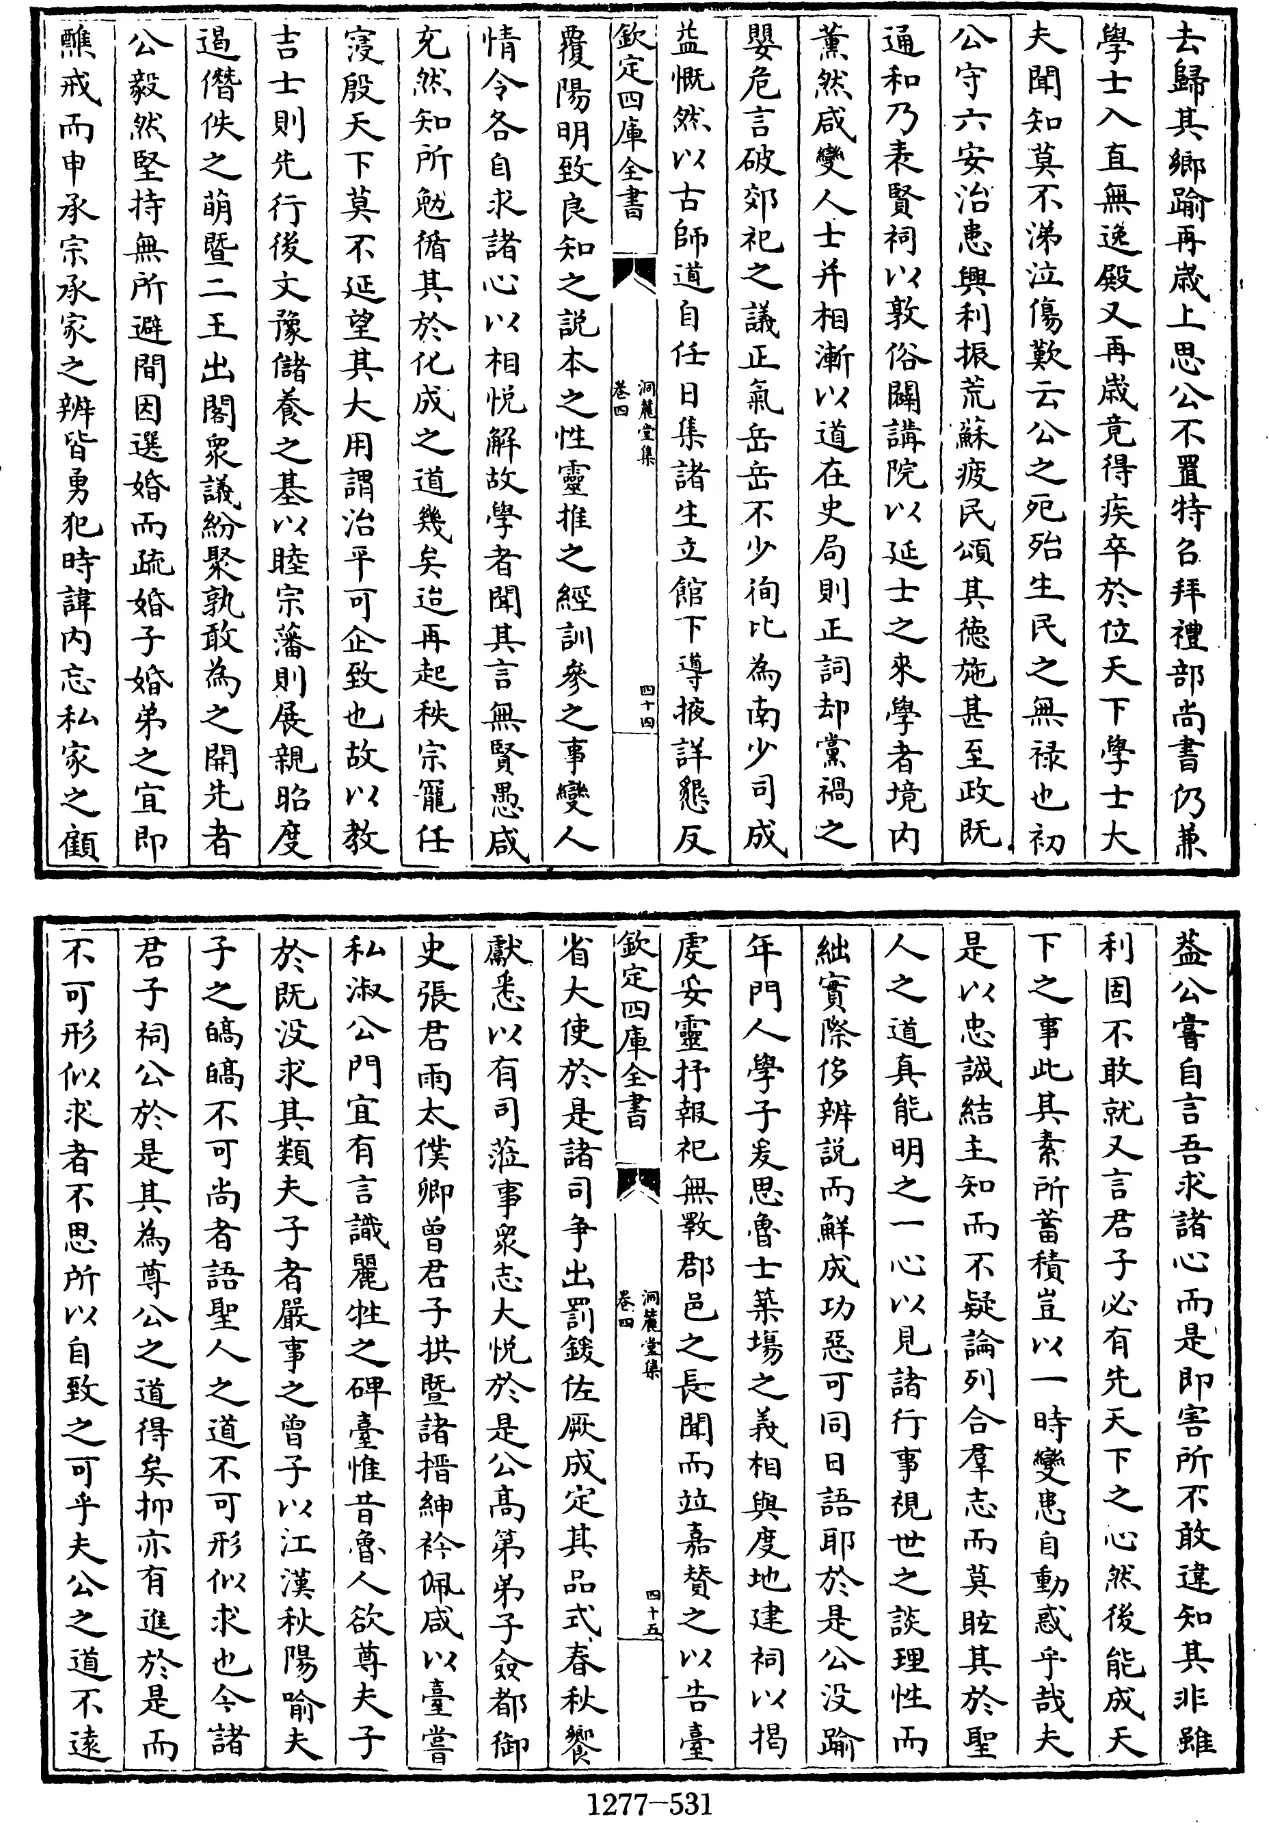 去歸其鄉踰再歲上思公不置特召拜禮部尚書仍兼
學士入直無逸殿又再歲竟得疾卒於位天下學士大
夫聞知莫不涕泣傷歎云公之死殆生民之無祿也初
公守六安治患興利振荒蘇疲民頌其徳施甚至政既
通和乃表賢祠以敦俗闢講院以延士之來學者境内
薰然咸變人士并相漸以道在史局則正詞却黨禍之
嬰危言破郊祀之議正氣岳岳不少徇比為南少司成
益慨然以古師道自任日集諸生立館下導掖詳懇反
欽定四庫全書
洞麓堂集
卷四
四十四
覆陽明致良知之説本之性靈推之經訓參之事變人
情令各自求諸心以相悦解故學者聞其言無賢愚咸
充然知所勉循其於化成之道幾矣迨再起秩宗寵任
寖殷天下莫不延望其大用謂治平可企致也故以教
吉士則先行後文豫儲養之基以睦宗藩則展親昭度
遏僭佚之萌暨二王出閣衆議紛聚孰敢為之開先者
公毅然堅持無所避間因選婚而疏婚子婚弟之宜即
醮戒而申承宗承家之辨皆勇犯時諱内忘私家之顧
葢公嘗自言吾求諸心而是即害所不敢違知其非雖
利固不敢就又言君子必有先天下之心然後能成天
下之事此其素所蓄積豈以一時變患自動惑乎哉夫
是以忠誠結主知而不疑論列合羣志而莫眩其於聖
人之道真能明之一心以見諸行事視世之談理性而
絀實際侈辨説而鮮成功惡可同日語耶於是公没踰
年門人學子爰思魯士築場之義相與度地建祠以揭
虔妥靈抒報祀無斁郡邑之長聞而竝嘉賛之以告臺
欽定四庫全書
洞麓堂集
卷四
四十五
省大使於是諸司爭出罰鍰佐厥成定其品式春秋饗
獻悉以有司蒞事衆志大悦於是公高第弟子僉都御
史張君雨太僕卿曾君于拱暨諸搢紳衿佩咸以臺嘗
私淑公門宜有言識麗牲之碑臺惟昔魯人欲尊夫子
於既没求其類夫子者嚴事之曾子以江漢秋陽喻夫
子之皜皜不可尚者語聖人之道不可形似求也今諸
君子祠公於是其為尊公之道得矣抑亦有進於是而
不可形似求者不思所以自致之可乎夫公之道不逺
1277-531